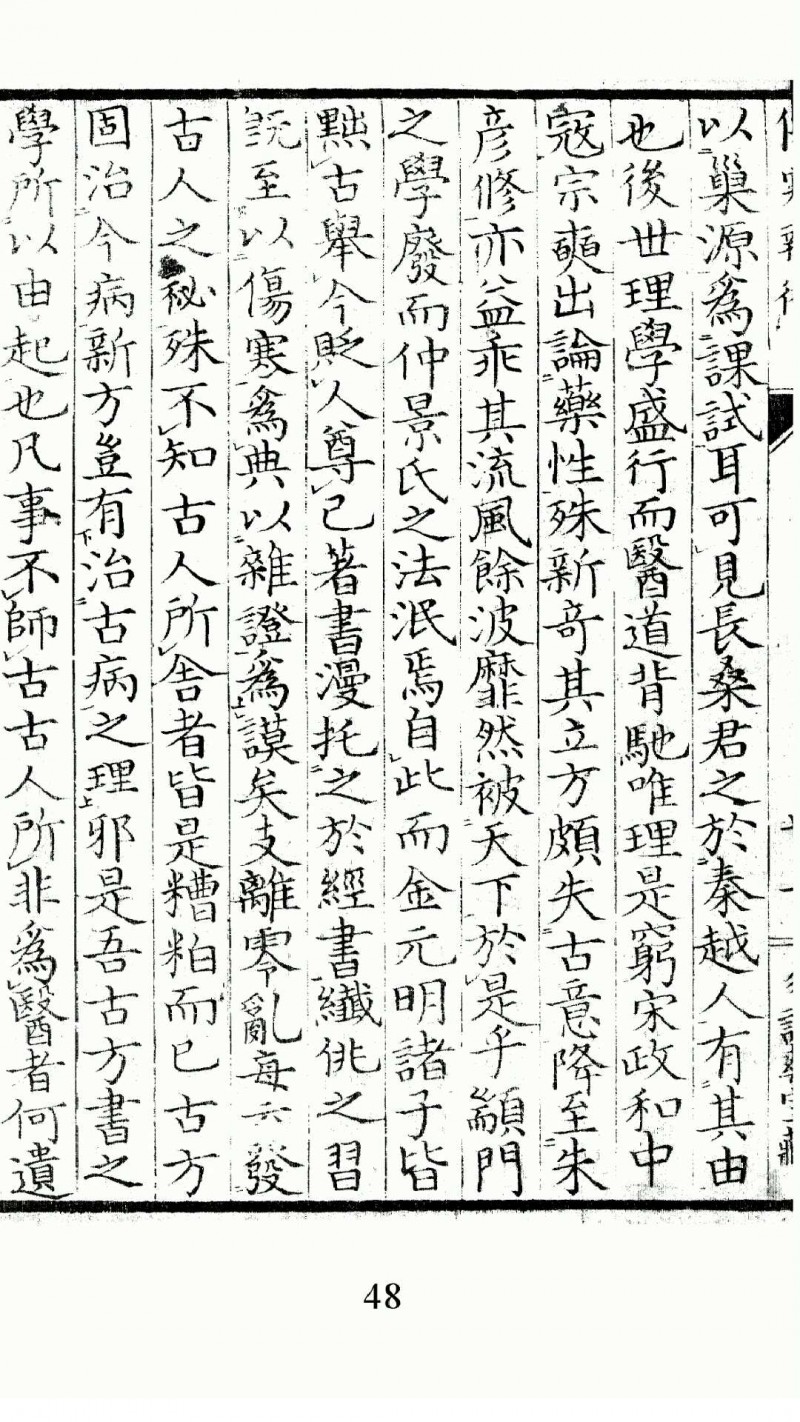 以巢源爲課試耳可見長桑君之於秦越人有其由
也後世理學盛行而醫道背馳唯理是窮宋政和中
寇宗奭出論藥性殊新奇其立方頗失古意降至朱
彦修亦益乖其流風餘波靡然被天下於是乎顓門
之學廢而仲景氏之法泯焉自此而金元明諸子皆
黜古舉今貶人尊己著書漫托之於經書纖佻之習
説至以傷寒爲典以雜證爲謨矣支離零亂每六發
古人之秘殊不知古人所舍者皆是糟粕而已古方
固治今病新方豈有治古病之理邪是吾古方書之
下 二 上
學所以由起也凡事不師古古人所非爲醫者何遺
48